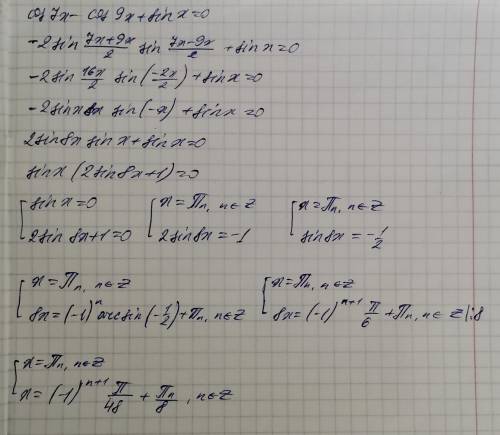 cos 7x - cos 9x + sin x = 0
-2 sin (7x+9x)/2 sin (7x-9x)/2 + sin x = 0
-2 sin 16x/2 sin(-2x/2) + sin x = 0
-2 sin 8x sin(-x) + sin x = 0
2 sin 8x sin x + sin x = 0
sin x (2 sin 8x + 1) = 0
[ sin x = 0 [ x = πn, n∈Z [ x = πn, n∈Z
2 sin 8x + 1 = 0 2 sin 8x = -1 sin 8x = -1/2
[ x = πn, n∈Z [ x = πn, n∈Z
8x = (-1)^n arcsin(-1/2) + πn, n∈Z 8x = (-1)^(n+1) π/6 + πn, n∈Z |:8
[ x = πn, n∈Z
x = (-1)^(n+1) π/48 + πn/8, n∈Z